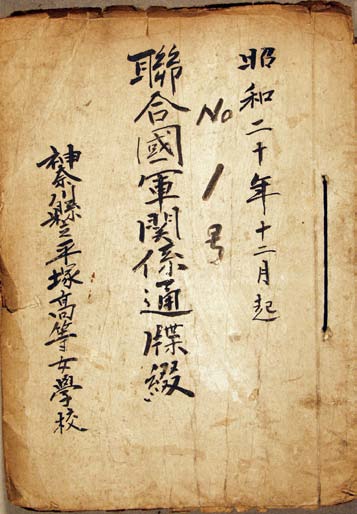 昭和二十年十二月起
No 1号
聯合國軍関係通牒綴
神奈川縣立平塚高等女學校